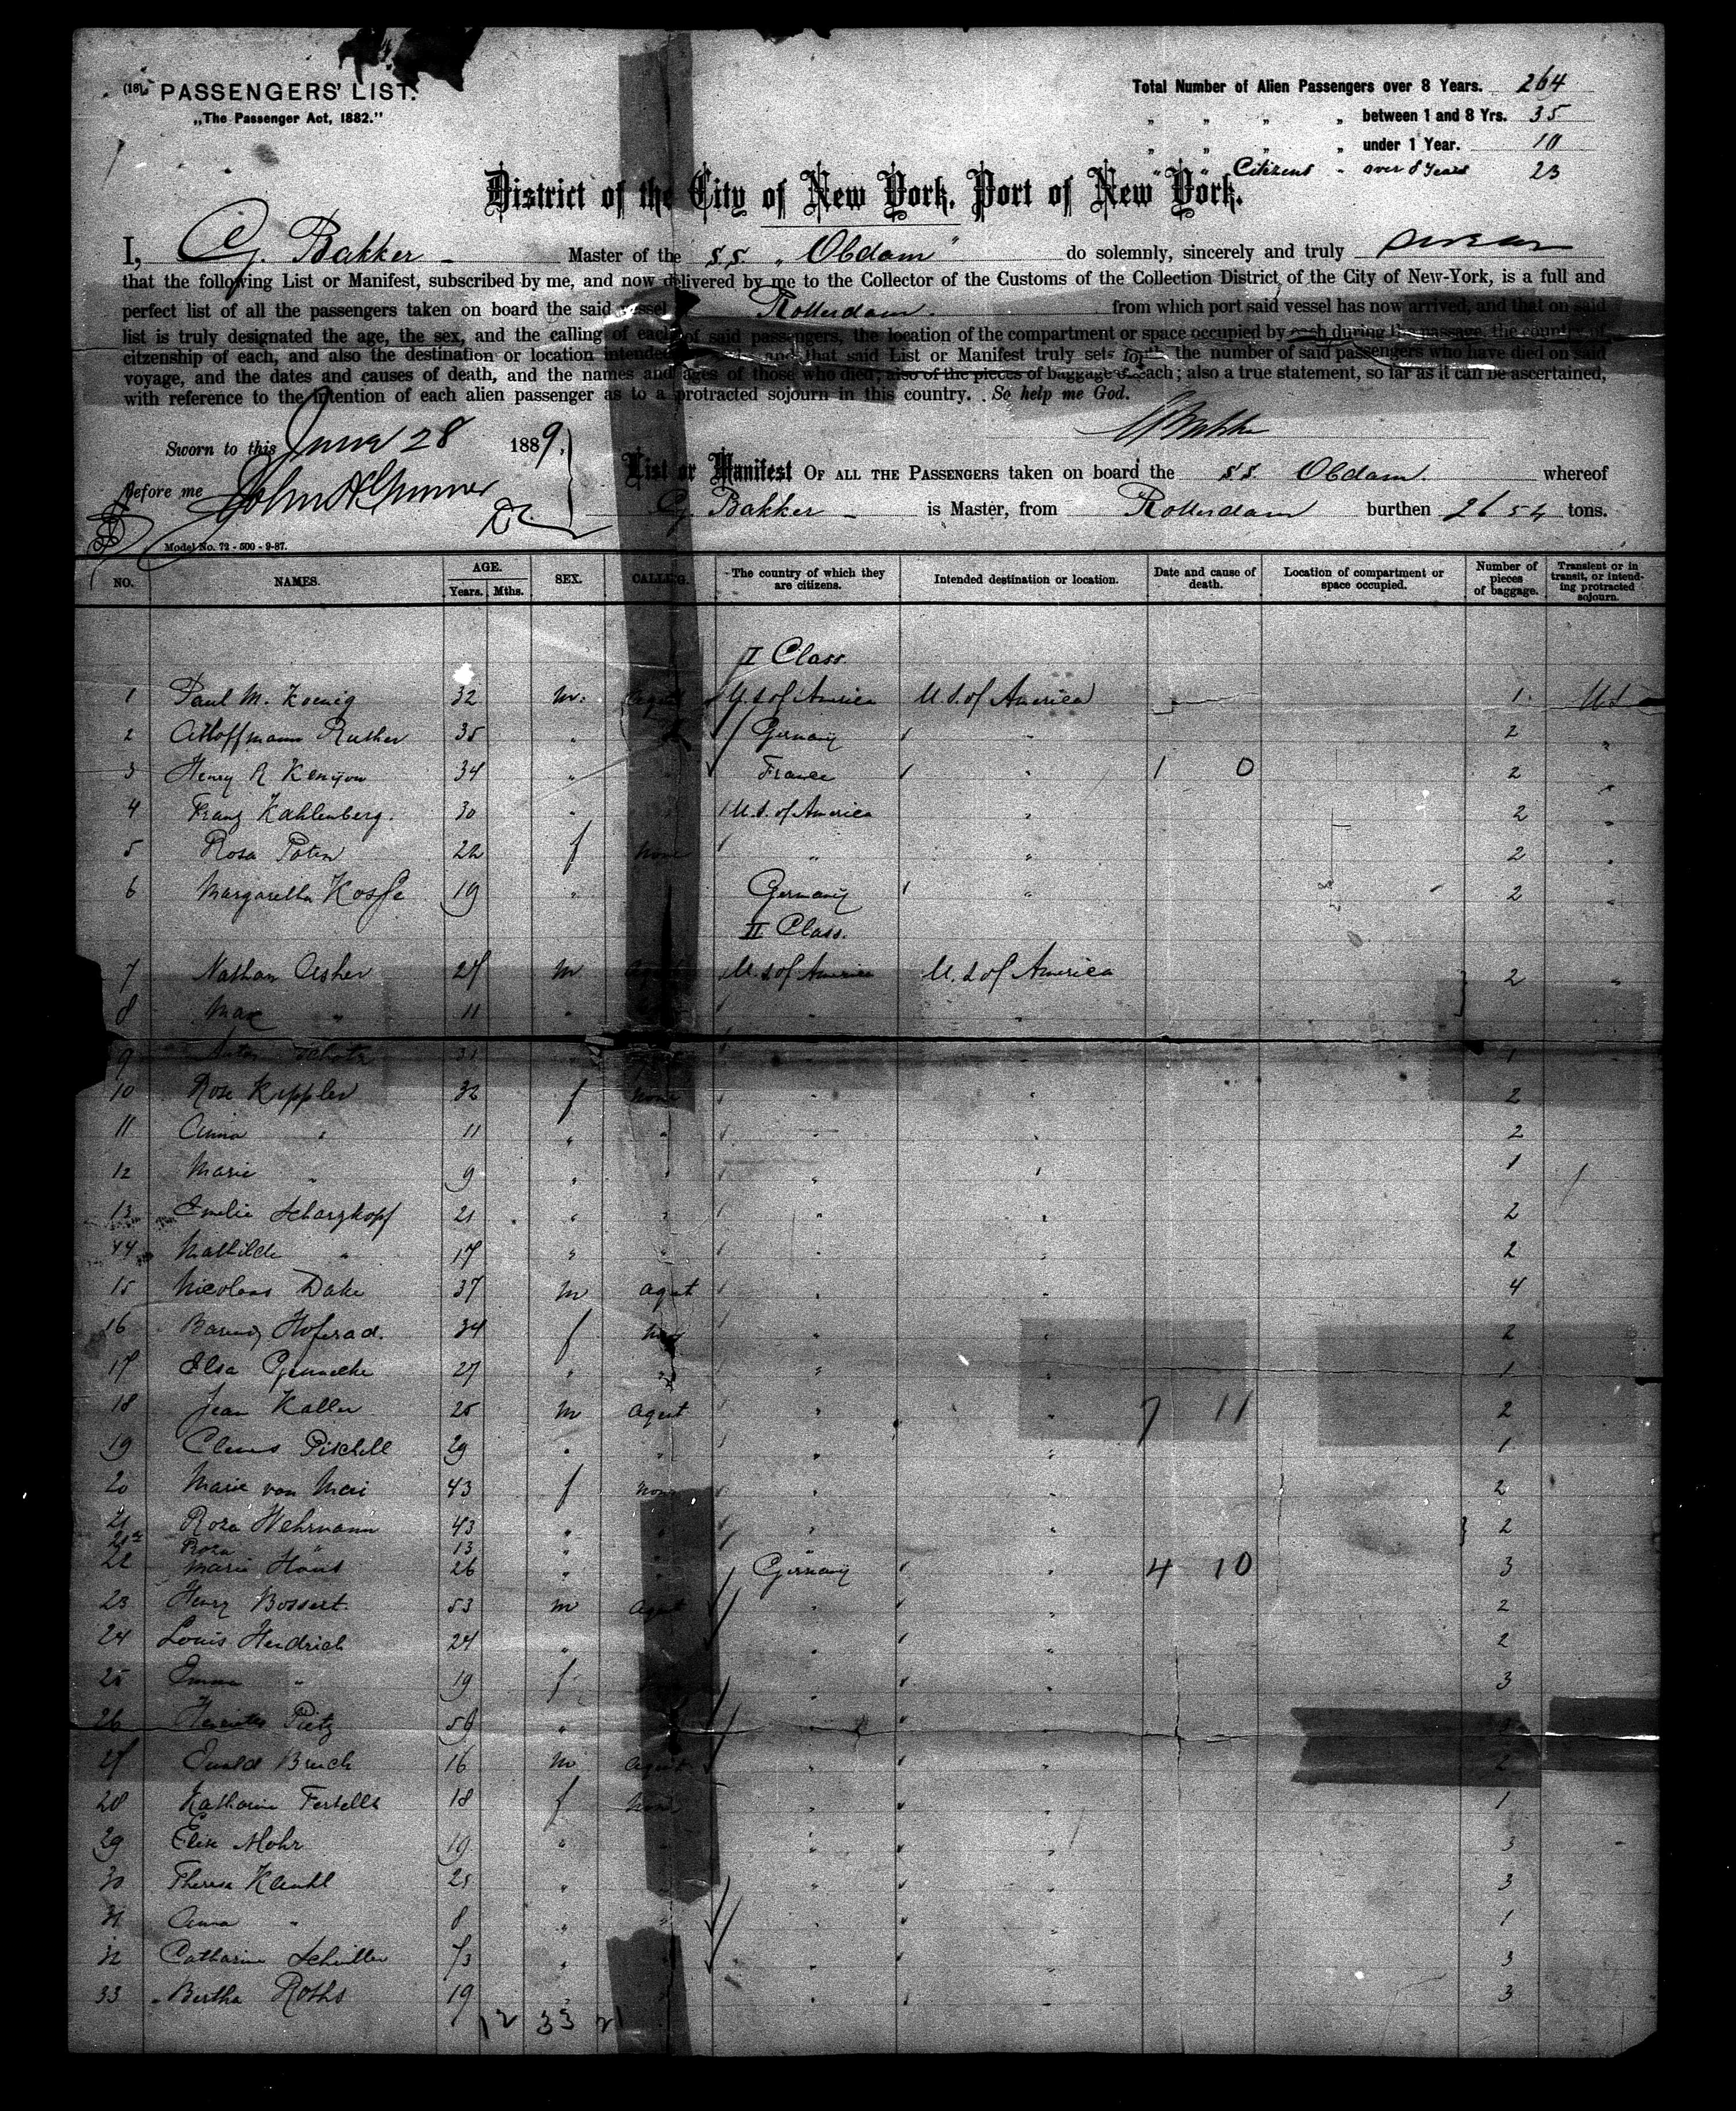 (18). PASSENGERS' LIST.
„The Passenger Act, 1882."
Total Number of Alien Passengers over 8 Years. 264
„ „ „ „ between 1 and 8 Yrs. 35
„ „ „ „ under 1 Year. 10
" " Citizens " over 8 Years 23
District of the City of New York, Port of New York.
I, G. Bakker Master of the S.S. „Obdam" do solemnly, sincerely and truly swear
that the following List or Manifest, subscribed by me, and now delivered by me to the Collector of the Customs of the Collection District of the City of New-York, is a full and
perfect list of all the passengers taken on board the said vessel Rotterdam from which port said vessel has now arrived, and that on said
list is truly designated the age, the sex, and the calling of each of said passengers, the location of the compartment or space occupied by each during the passage, the country of
citzenship of each, and also the destination or location intended and that said List or Manifest truly sets forth the number of said passengers who have died on said
voyage, and the dates and causes of death, and the names and ages of those who died; also of the pieces of baggage of each; also a true statement, so far as it can be ascertained,
with reference to the intention of each alien passenger as to a protracted sojourn in this country. So help me God.
G Bakker
Sworn to this June 28 1889.
List or Manifest OF ALL THE PASSENGERS taken on board the S.S. Obdam. whereof
Before me
G. Bakker is Master, from Rotterdam burthen 2654 tons.
Model No. 72 - 500 - 9-87.
NO. NAMES. AGE. Years. Mths. SEX. CALLING. The country of which they are citizens. Intended destination or location. Date and cause of death. Location of compartment or space occupied. Number of pieces of baggage. Transient or in transit, or intending protracted sojourn.
I Class.
1 Paul M. Koenig 32 m. Agent U.S of America U.S. of America 1 U.S
2 Rusher 35 " Germany " 2 "
3 Henry R Kenyon 34 " France 1 0 2 "
4 Franz Kahlenberg. 30 " U.S. of America " 2 "
5 Rosa 22 f None " " 2 "
6 Margaretha 19 " Germany " 2 "
II Class.
7 Nathan Asher 27 m U.S of America U.S of America 2 "
8 Max " 11 " " "
9 31 1
10 Rose Keppler 32 f None " " 2
11 Anna " 11 " " " " 2
12 Marie " 9 " " " " 1
13 Emilie Scharzkopf 21 " " " " 2
14 Mathilde " 17 " " " " 2
15 Nicolaas Dake 37 m agent " " 4
16 34 f " " 2
17 Elsa 27 " " " " 1
18 Jean Kaller 25 m Agent " " 7 11 2
19 Pischell 29 " " " " 1
20 Marie von Mai 43 f None " " 2
21 Roza Wehrmann 43 " " " " 2
21a Roza " 13 " "
22 Marie 26 " " Germany " 4 10 3
23 Henry Bossert 53 m Agent " " 2
24 Louis Heidrich 24 " " " 2
25 Emma " 19 f " " 3
26 Pietz "
27 Ewald Bruch 16 m Agent " " 2
28 Katharine 18 f None " " 1
29 Elise Mohr 19 " " " " 3
30 Theresa 25 " " " 3
31 Anna " 8 " " " " 1
32 Catharine Schuller 73 " " " 3
33 Bertha Roths 19 " " 3
12 33 21